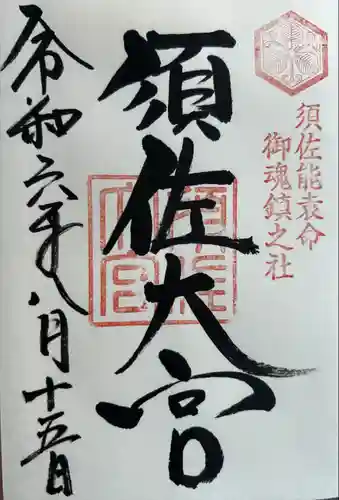 須佐能袁命
御魂鎮之社
須佐大宮
須佐大宮
令和六年八月十五日